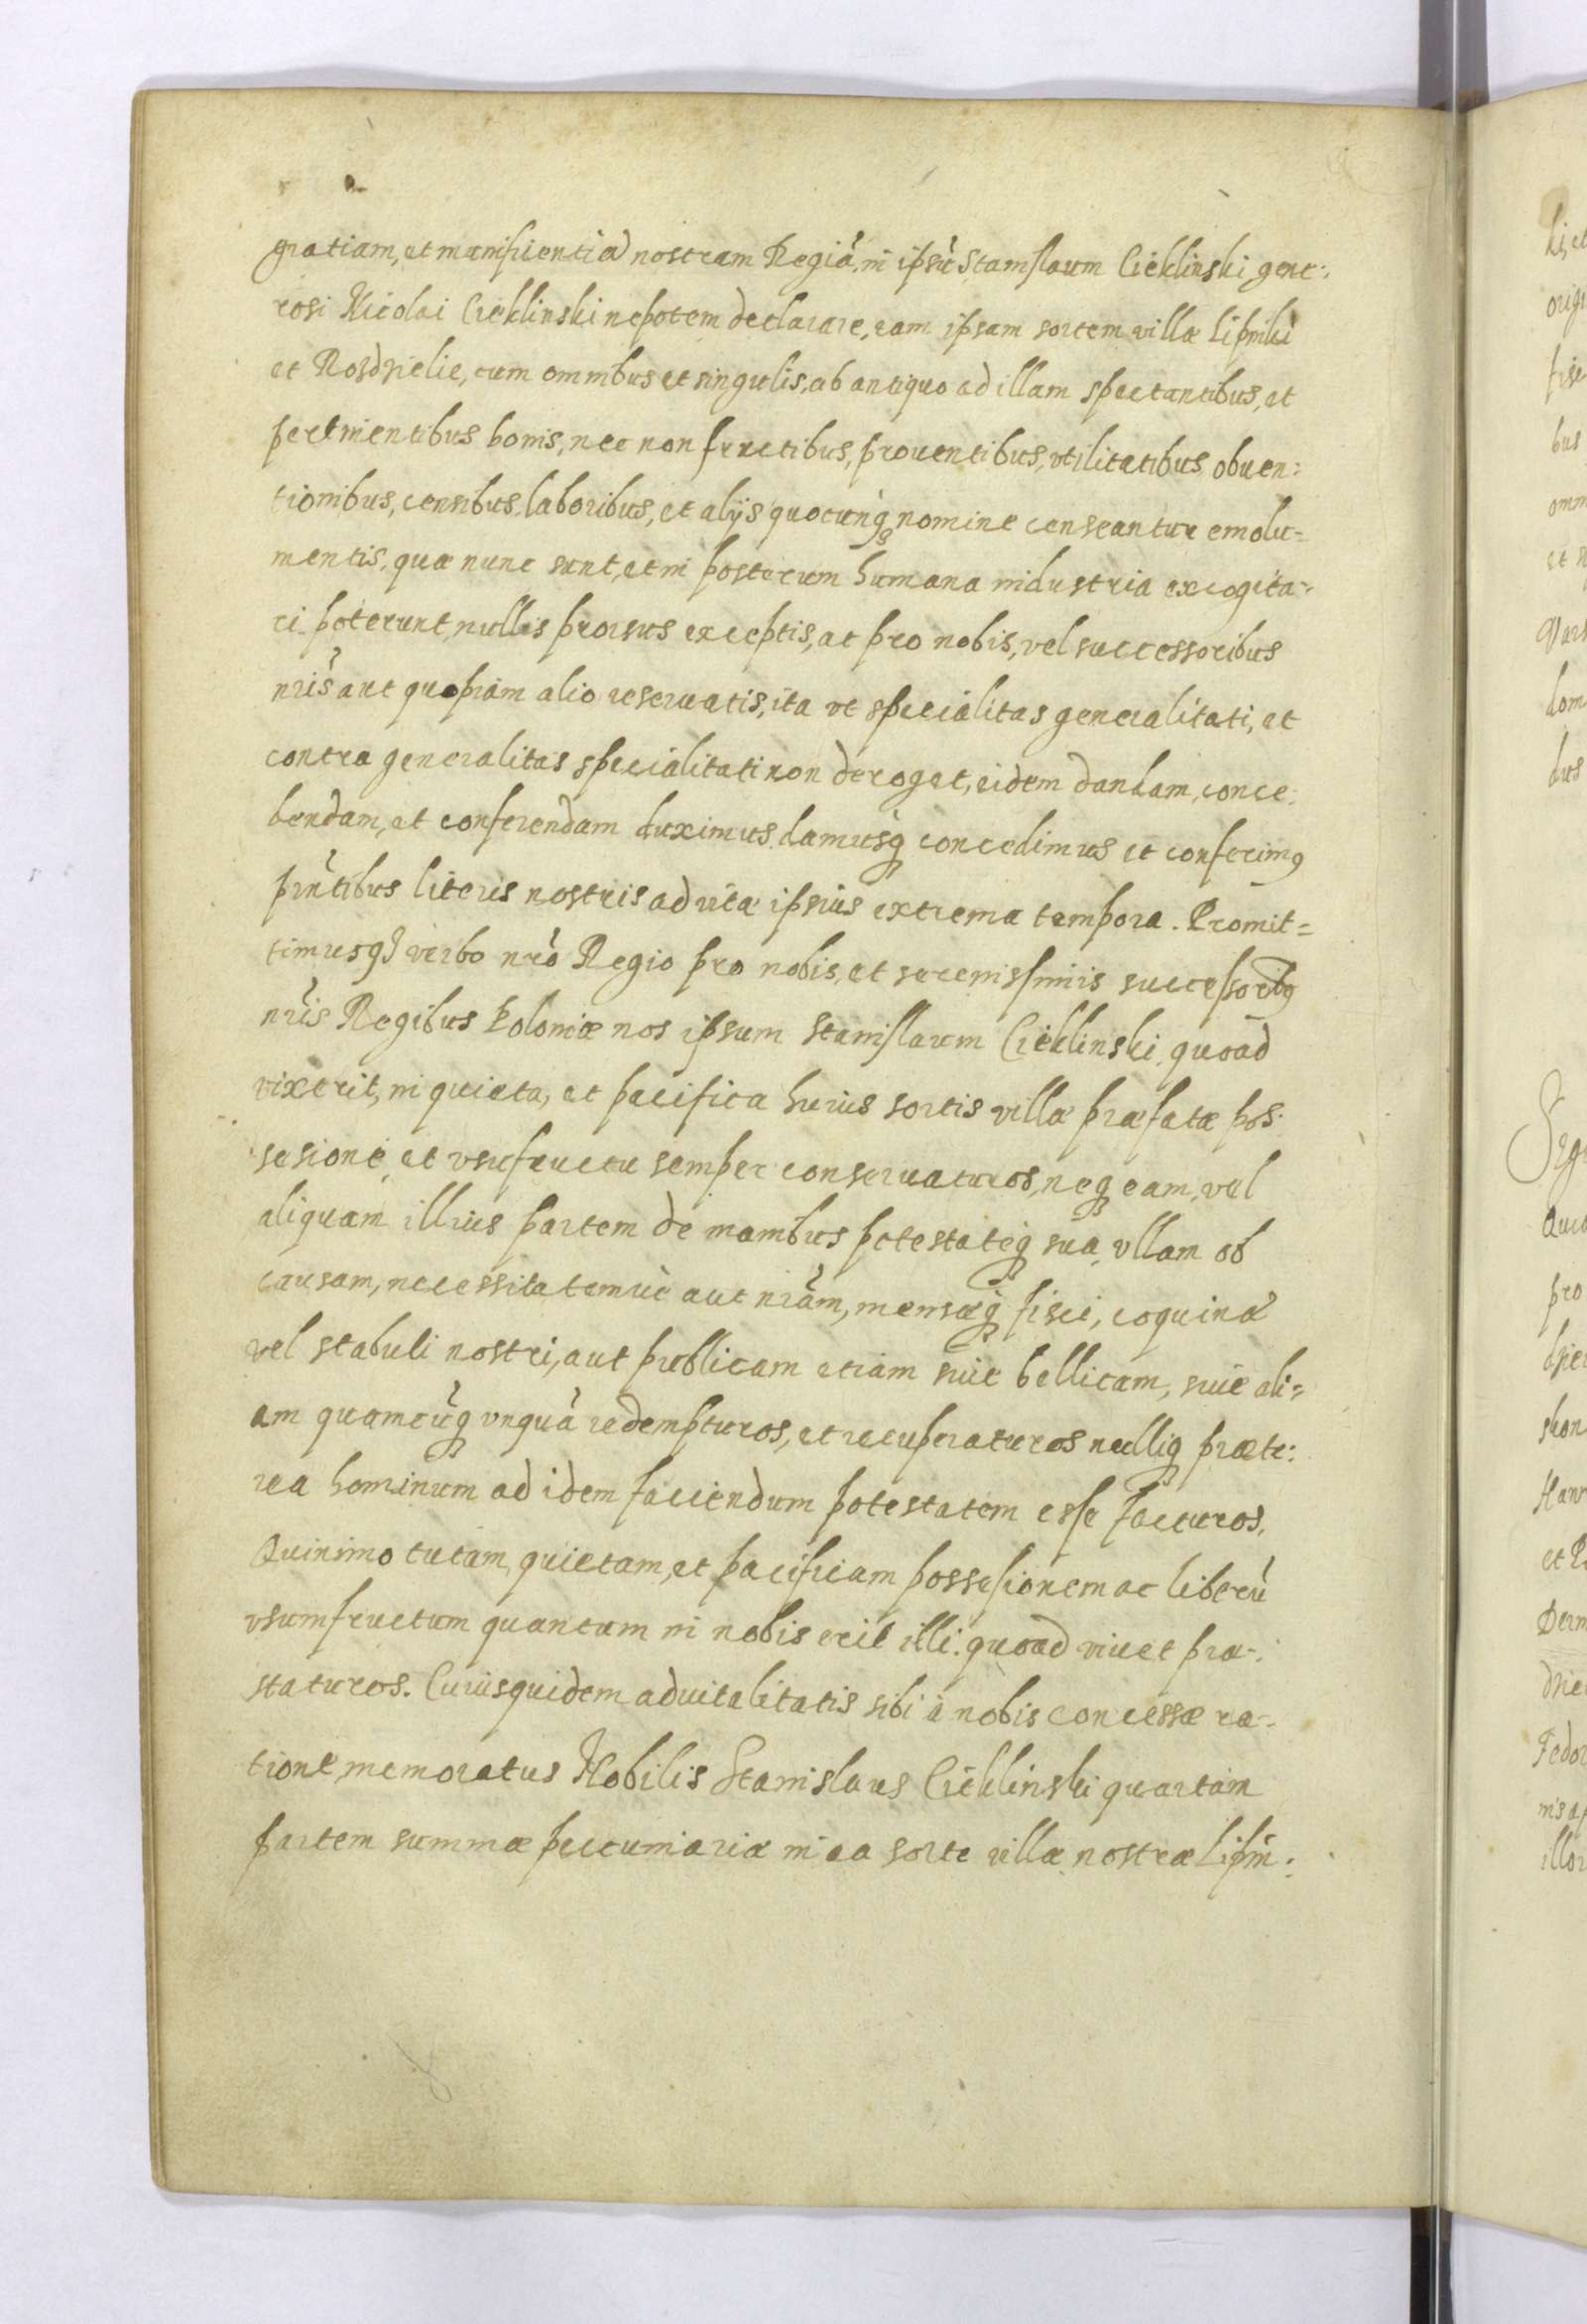 gratiam, et munificentiã nostram Regiã, in ipsũ Stanislaum Cieklinski gene:
rosi Nicolai Cieklinski nepotem declarare, eam ipsam sortem villæ Lipniki
et Rosdzielie, cum omnibus et singulis, ab antiquo ad illam spectantibus, et
pertinentibus bonis, nec non fructibus, prouentibus, vtilitatibus, obuen:
tionibus, censibus, laboribus, et alijs quocunq́ꝫ nomine censeantur emolu=
mentis, quæ nunc sunt, et in posterum humana industria excogita=
ri poterunt, nullis prorsus exceptis, at pro nobis, vel successoribus
nr̃is aut quopiam alio reseruatis, ita vt specialitas generalitati, et
contra generalitas specialitati non deroget, eidem dandam, conce:
dendam, et conferendam duximus. damusqꝫ concedimus et conferimꝯ
pñtibus literis nostris ad vitæ ipsius extrema tempora. Promit=
timusqꝫ verbo nr̃o Regio pro nobis, et serenissimis successoribꝯ
nr̃is Regibus Poloniæ nos ipsum Stanislaum Cieklinski, quoad
vixerit, in quieta, et pacifica huius sortis villæ præfatæ pos:
sesione, et vsufructu semper conseruaturos, neqꝫ eam, vel
aliquam illius partem de manibus potestateqꝫ sua, vllam ob
causam, necessitatemue aut nr̃am, mensæqꝫ fisci, coquinæ
vel stabuli nostri, aut publicam etiam siue bellicam, siue ali=
am quamcũqꝫ vnquã redempturos, et recuperaturos nulliqꝫ præte:
rea hominum ad idem faciendum potestatem esse facturos.
Quinimo tutam, quietam, et pacificam possesionem ac liberũ
vsumfructum quantum in nobis erit illi. quoad viuet præ:
staturos. Cuiusquidem aduitalitatis sibi à nobis concessæ ra:
tione, memoratus Nobilis Stanislaus Cieklinski quartam
partem summæ peccuniariæ in ea sorte villæ nostræ Lipni: